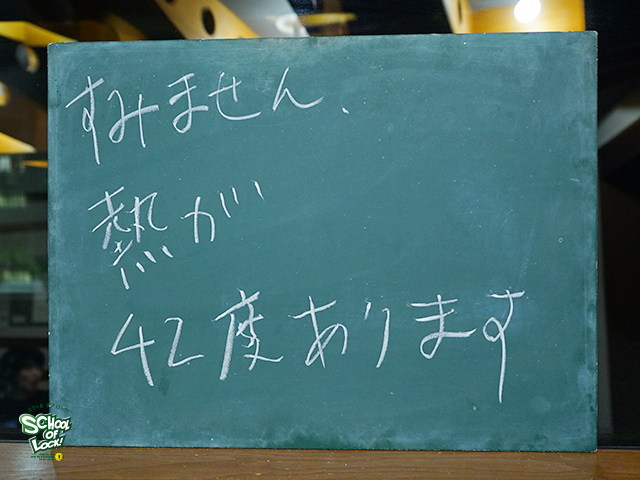 すみません、
熱が
42度あります
SCHOOL
OF
LOCK!